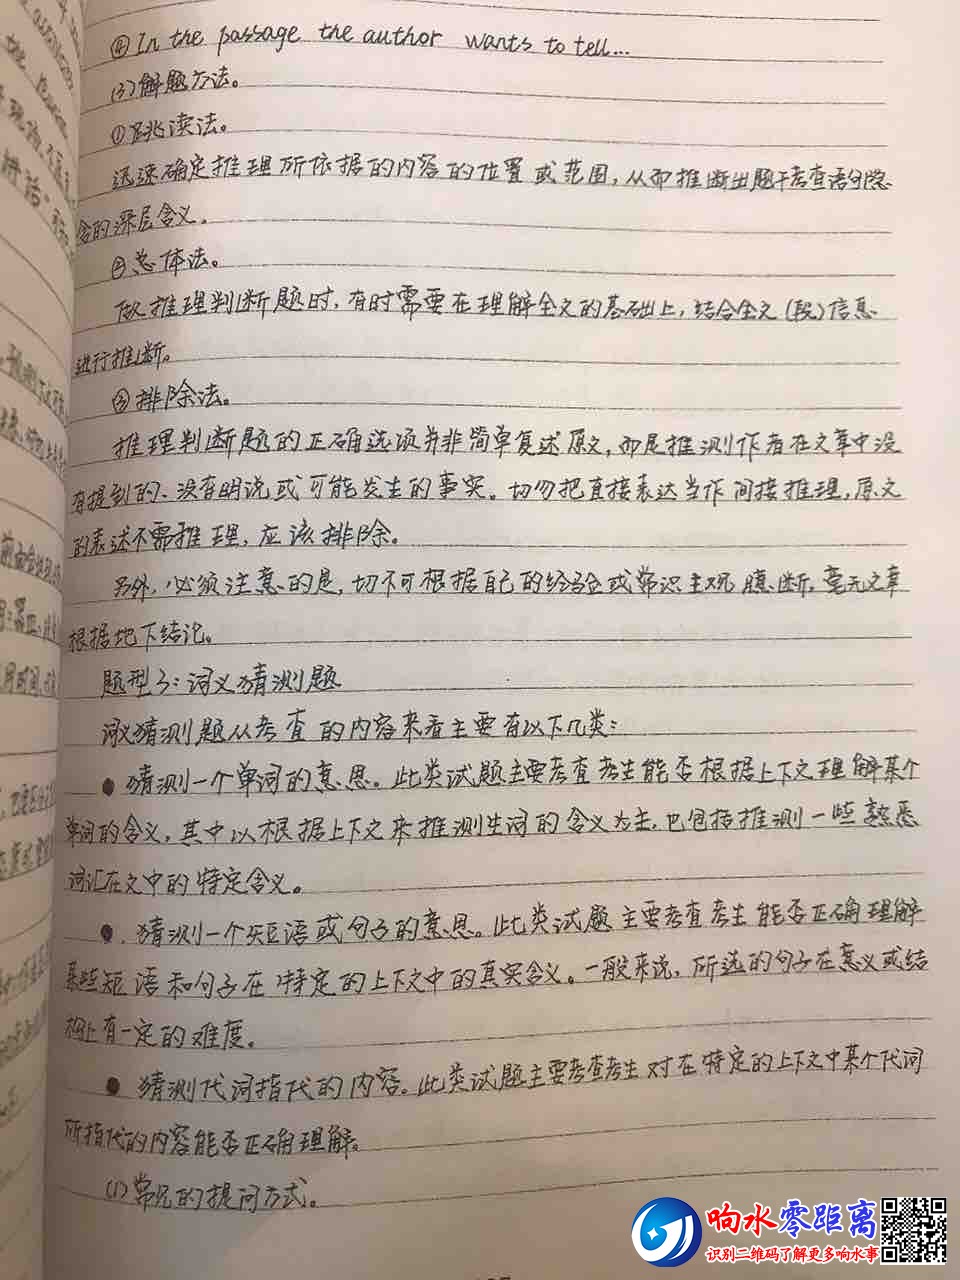 ④In the passage the author wants to tell...
(3)解题方法。
①跳读法。
迅速确定推理所依据的内容的位置或范围,从而推断出题干考查语句隐
含的深层含义。
②总体法。
做推理判断题时,有时需要在理解全文的基础上,结合全文(段)信息
进行推断。
③排除法。
推理判断题的正确选项并非简单复述原文,而是推测作者在文章中没
有提到的、没有明说或可能发生的事实。切勿把直接表达当作间接推理,原文
的表述不需推理,应该排除。
另外,必须注意的是,切不可根据自己的经验或常识主观臆断,毫无文章
根据地下结论。
题型3:词义猜测题
词义猜测题从考查的内容来看主要有以下几类:
●猜测一个单词的意思。此类试题主要考查考生能否根据上下文理解某个
单词的含义,其中以根据上下文来推测生词的含义为主,也包括推测一些熟悉
词汇在文中的特定含义。
●猜测一个短语或句子的意思。此类试题主要考查考生能否正确理解
某些短语和句子在特定的上下文中的真实含义。一般来说,所选的句子在意义或结
构上有一定的难度。
●猜测代词指代的内容。此类试题主要考查考生对在特定的上下文中某个代词
所指代的内容能否正确理解。
(1)常见的提问方式。
响水零距离
识别二维码了解更多响水事